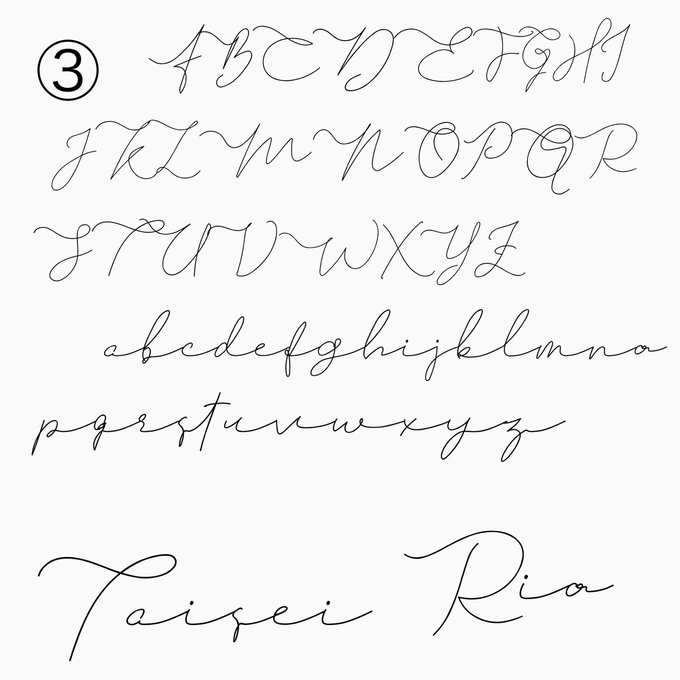 ③ ABCDEFGHI
JKLMNOPQR
STUVWXYZ
abcdefghijklmno
pqrstuvwxyz
Taisei Rio